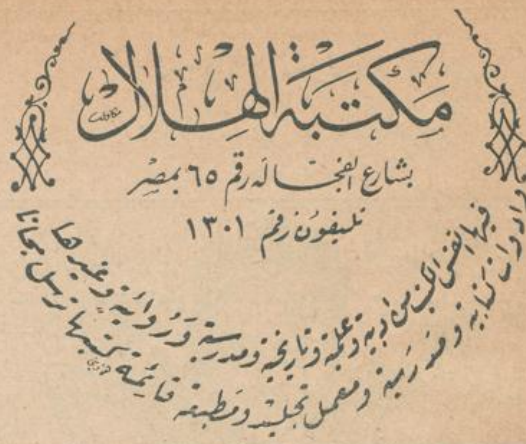 مكتبة الهلال
بشارع الفجالة رقم ٦٥ بمصر
تليفون رقم ١٣٠١
فيها انفس الكتب من ادبية وعلمية وتاريخية ومدرسية وروائية وغيرها
وادوات كتابية ومدرسية ومعمل تجليد ومطبعة قائمة كتبها ترسل مجانا